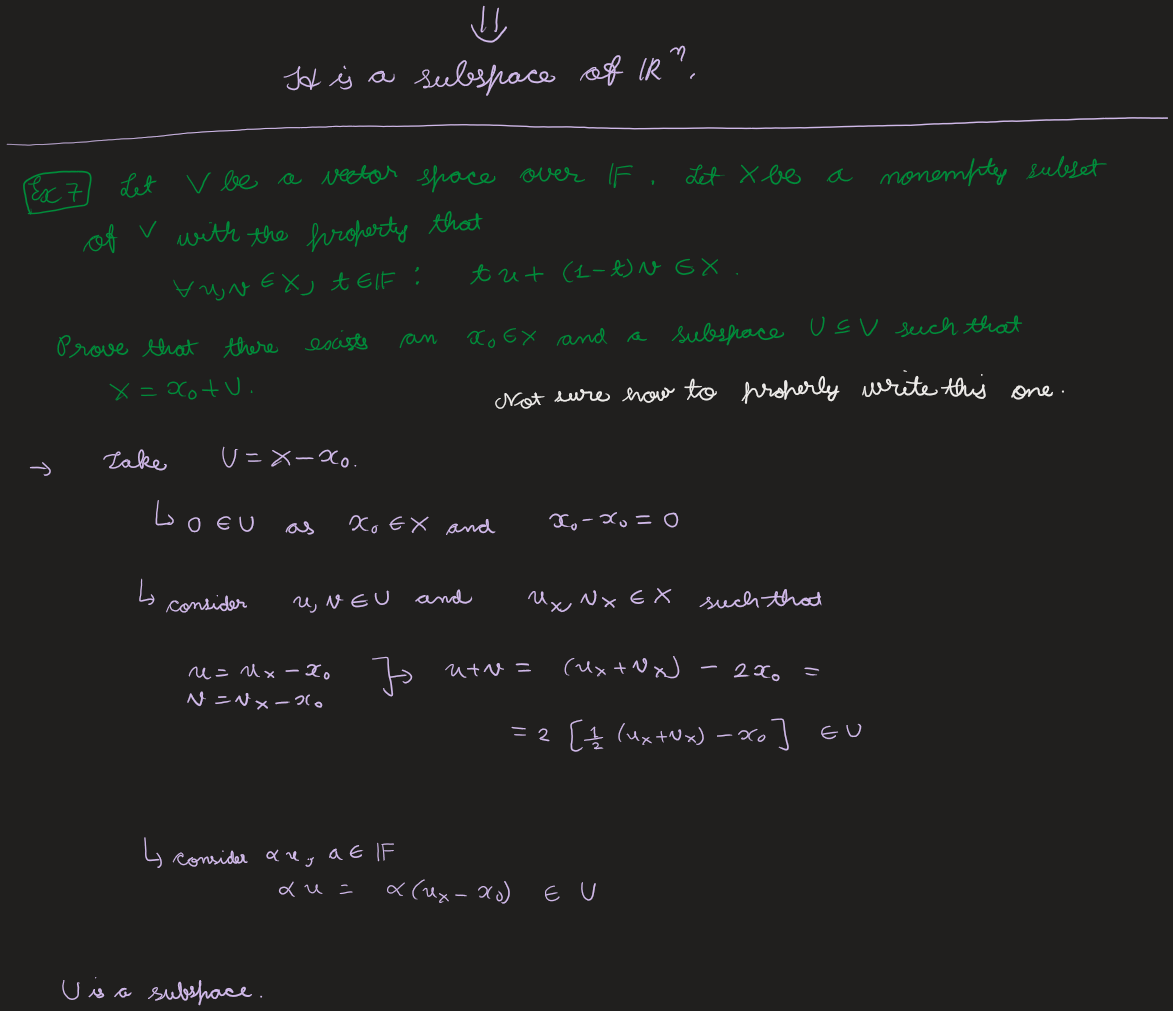 ⇓
It is a subspace of ℝⁿ.
Ex 7 Let V be a vector space over 𝔽. Let X be a nonempty subset
of V with the property that
∀u,v ∈ X, t ∈ 𝔽 : tu + (1-t)v ∈ X.
Prove that there exists an x₀ ∈ X and a subspace U ⊆ V such that
X = x₀ + U.
Not sure how to properly write this one.
→ Take U = X - x₀.
↳ 0 ∈ U as x₀ ∈ X and x₀ - x₀ = 0
↳ consider u, v ∈ U and uₓ, vₓ ∈ X such that
u = uₓ - x₀ ]→ u+v = (uₓ + vₓ) - 2x₀ =
v = vₓ - x₀
= 2 [½ (uₓ + vₓ) - x₀] ∈ U
↳ consider αu, a ∈ 𝔽
αu = α(uₓ - x₀) ∈ U
U is a subspace.